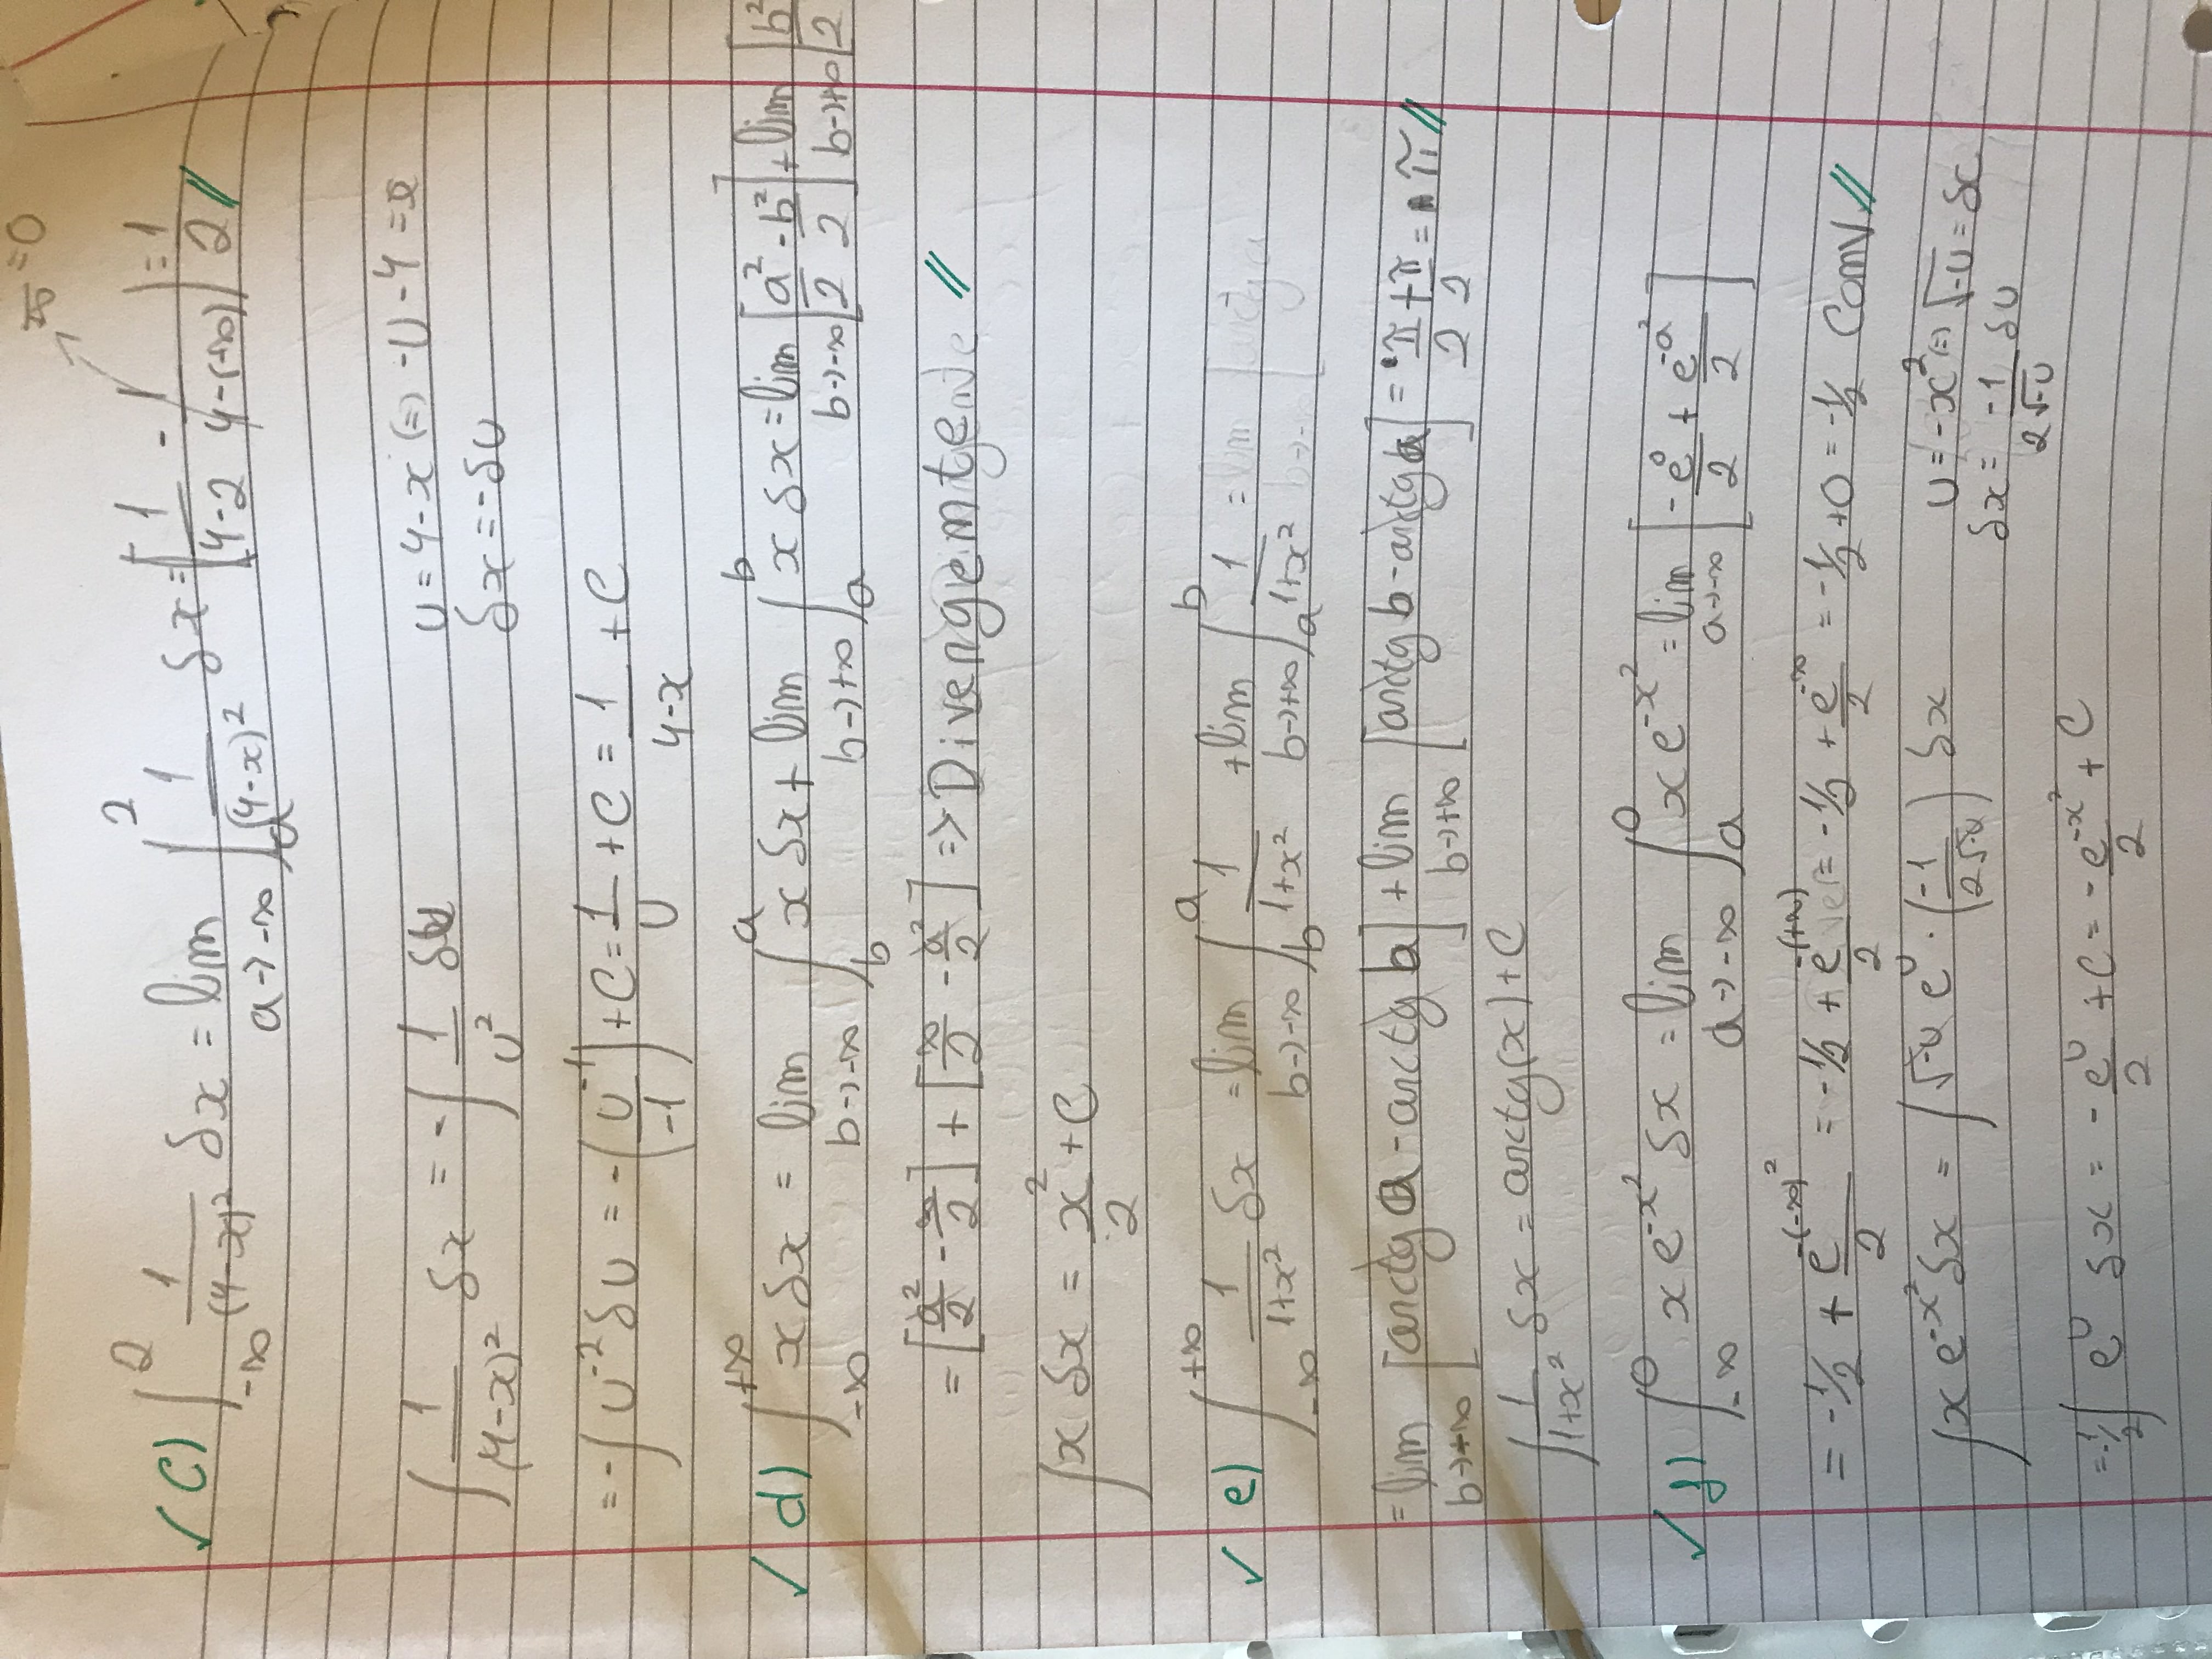 ∞ = 0
✓ c) ∫_{-∞}^{2} 1/(4-x)² δx = lim_{a→-∞} ∫_{a}^{2} 1/(4-x)² δx = [1/(4-2) - 1/(4-(+∞))] = 1/2 //
∫ 1/(4-x)² δx = -∫ 1/u² δu    u = 4-x (=) -u-4 = x
δx = -δu
= -∫ u⁻² δu = -(u⁻¹/-1) + C = 1/u + C = 1/(4-x) + C
✓ d) ∫_{-∞}^{+∞} x δx = lim_{b→-∞} ∫_{b}^{a} x δx + lim_{b→+∞} ∫_{a}^{b} x δx = lim_{b→-∞} [a²/2 - b²/2] + lim_{b→+∞} [b²/2
= [a²/2 - ∞/2] + [∞/2 - a²/2] => Divergente //
∫ x δx = x²/2 + C
✓ e) ∫_{-∞}^{+∞} 1/(1+x²) δx = lim_{b→-∞} ∫_{b}^{a} 1/(1+x²) + lim_{b→+∞} ∫_{a}^{b} 1/(1+x²) =
= lim_{b→+∞} [arctg a - arctg b] + lim_{b→+∞} [arctg b - arctg a] = π/2 + π/2 = π //
∫ 1/(1+x²) δx = arctg(x) + C
✓ f) ∫_{-∞}^{0} x e^{-x²} δx = lim_{a→-∞} ∫_{a}^{0} x e^{-x²} = lim_{a→-∞} [-e⁰/2 + e^{-a²}/2]
= -1/2 + e^{-(-∞)²}/2 = -1/2 + e^{-(+∞)}/2 = -1/2 + e^{-∞}/2 = -1/2 + 0 = -1/2 Conv //
∫ x e^{-x²} δx = ∫ √-u e^u · (-1/(2√-u)) δx    u = -x² (=) √-u = x
δx = -1/(2√-u) δu
= -1/2 ∫ e^u δx = -e^u/2 + C = -e^{-x²}/2 + C